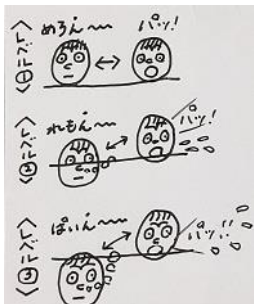 <レベル①>
めろん〜〜
パッ!
<レベル②>
れもん〜〜
パッ!
<レベル③>
ぱいん〜〜
パッ!!